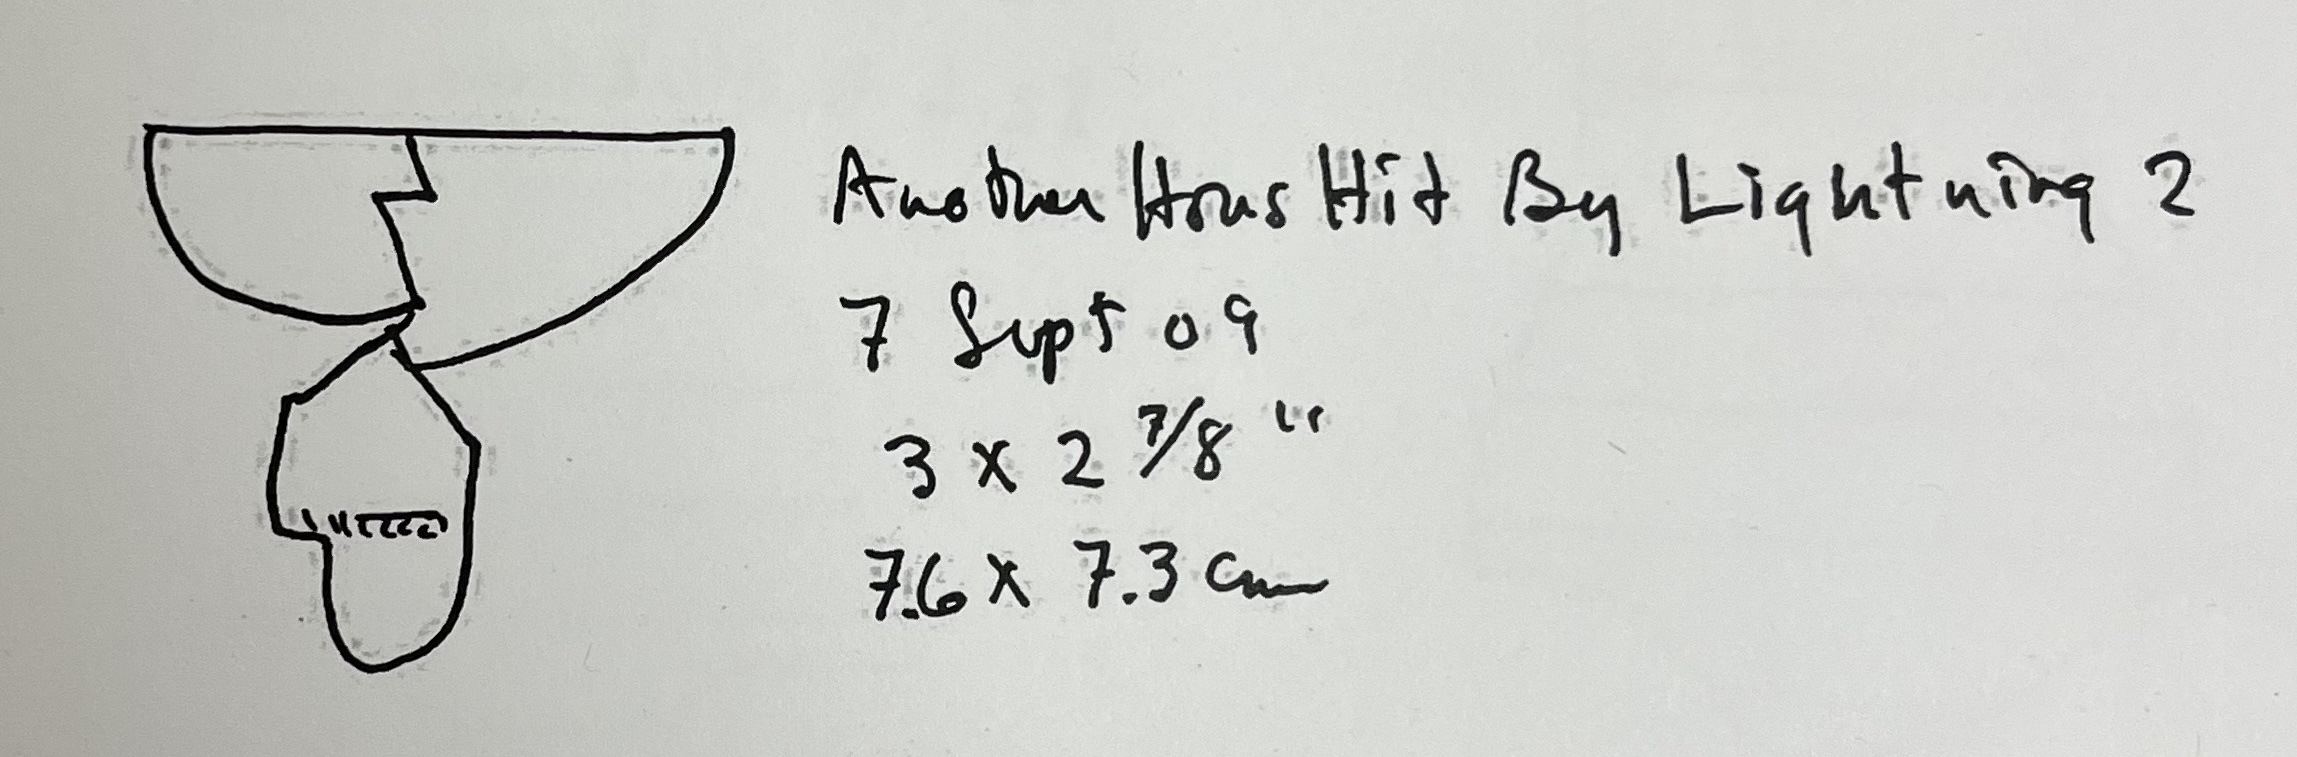 Another Hous Hit By Lightning 2
7 Sept 09
3 x 2 7/8 "
7.6 x 7.3 cm